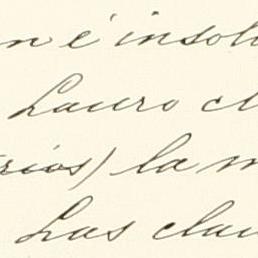 n é insol
Lauro cl
rios) la m
Las clau